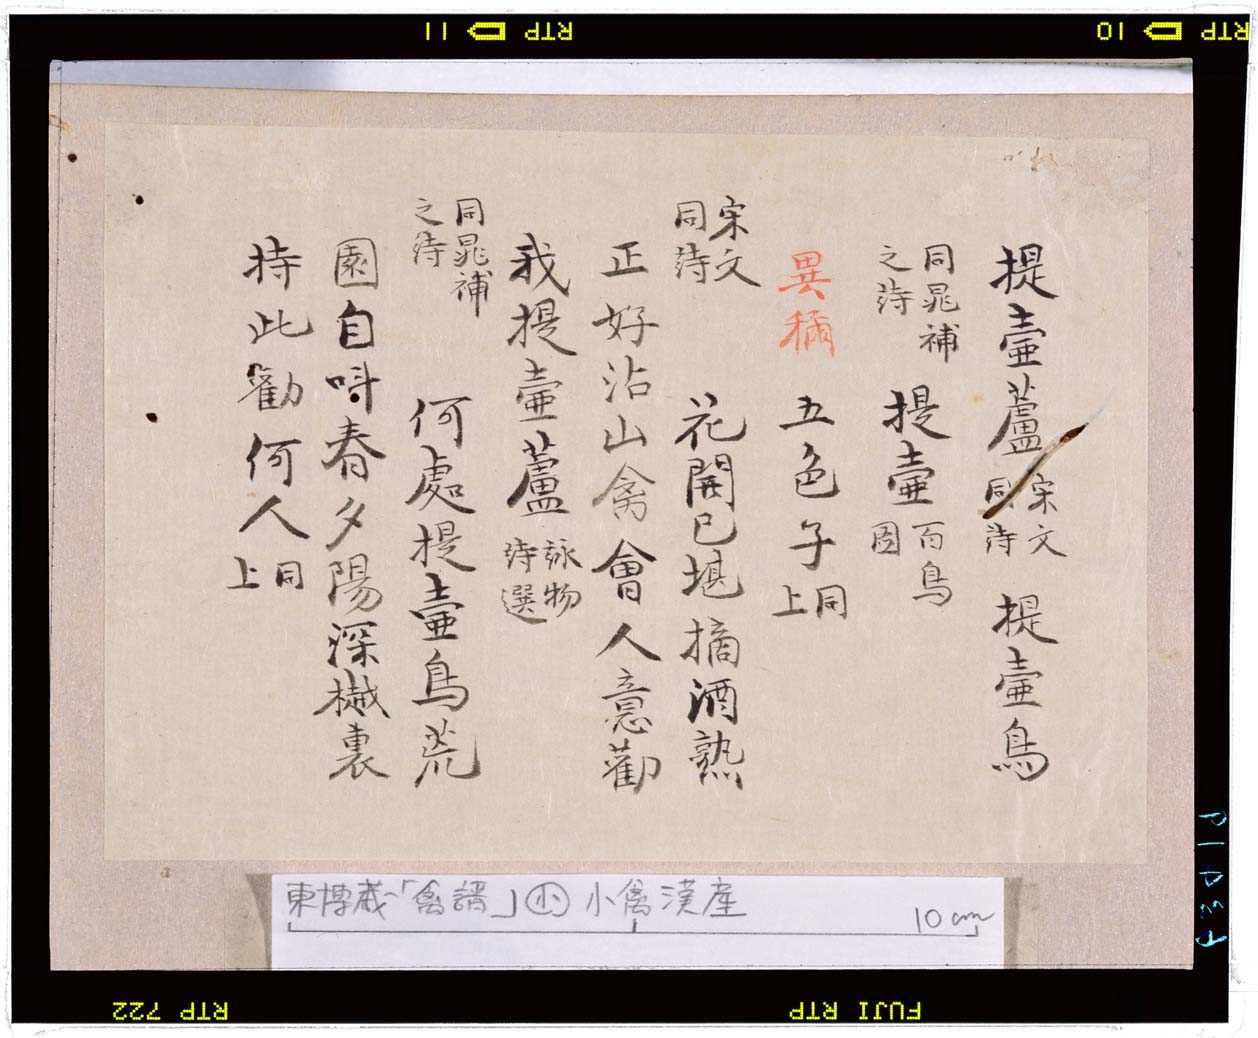 提壷蘆 宋文同詩 提壷鳥
同晁補之詩 提壷 百鳥圖
異稱 五色子 同上
宋文同詩 花開已堪摘酒熟
正好沽山禽會人意勸
我提壷蘆 詠物詩選
同晁補之詩 何處提壷鳥荒
園自呌春夕陽深樾裏
持此勸何人 同上
東博蔵「禽譜」 小禽漢産
10cm
RTP 10
RTP 11
FUJI RTP
RTP 722